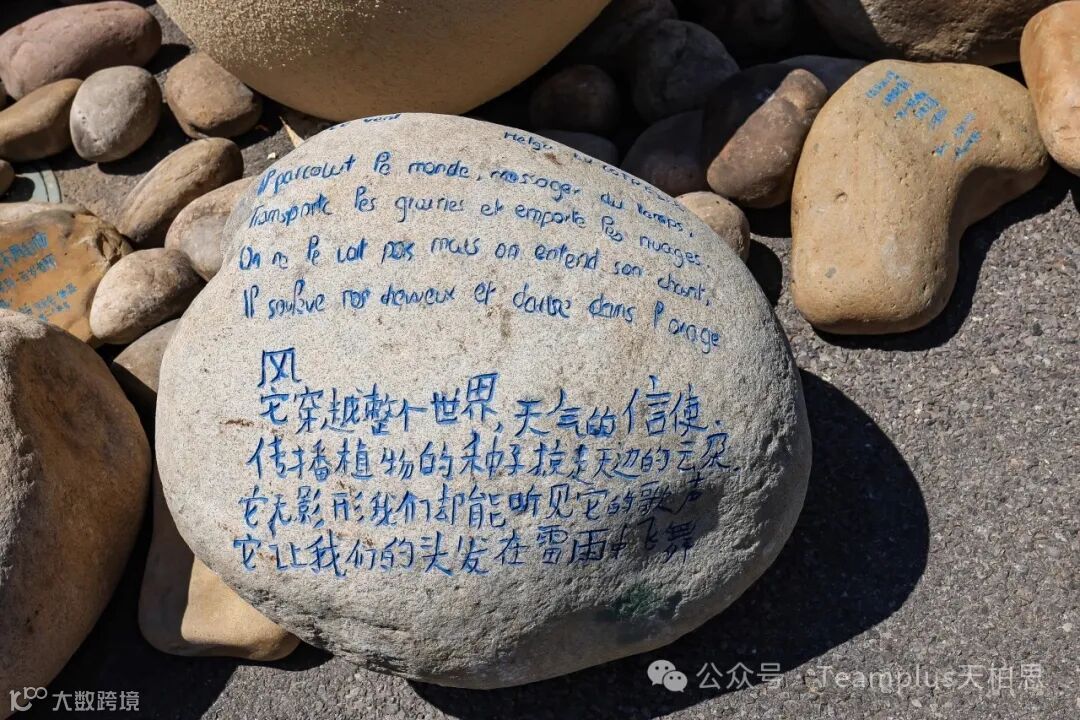 Le vent
Il parcourt le monde, messager du temps,
Transporte les graines et emporte les nuages.
On ne le voit pas mais on entend son chant,
Il soulève nos cheveux et danse dans l'orage
风
它穿越整个世界,天气的信使.
传播植物的种子掠走天边的云朵.
它无影形我们却能听见它的歌声
它让我们的头发在雷雨中飞舞
公众号 · Teamplus天柏思
10100 大数跨境